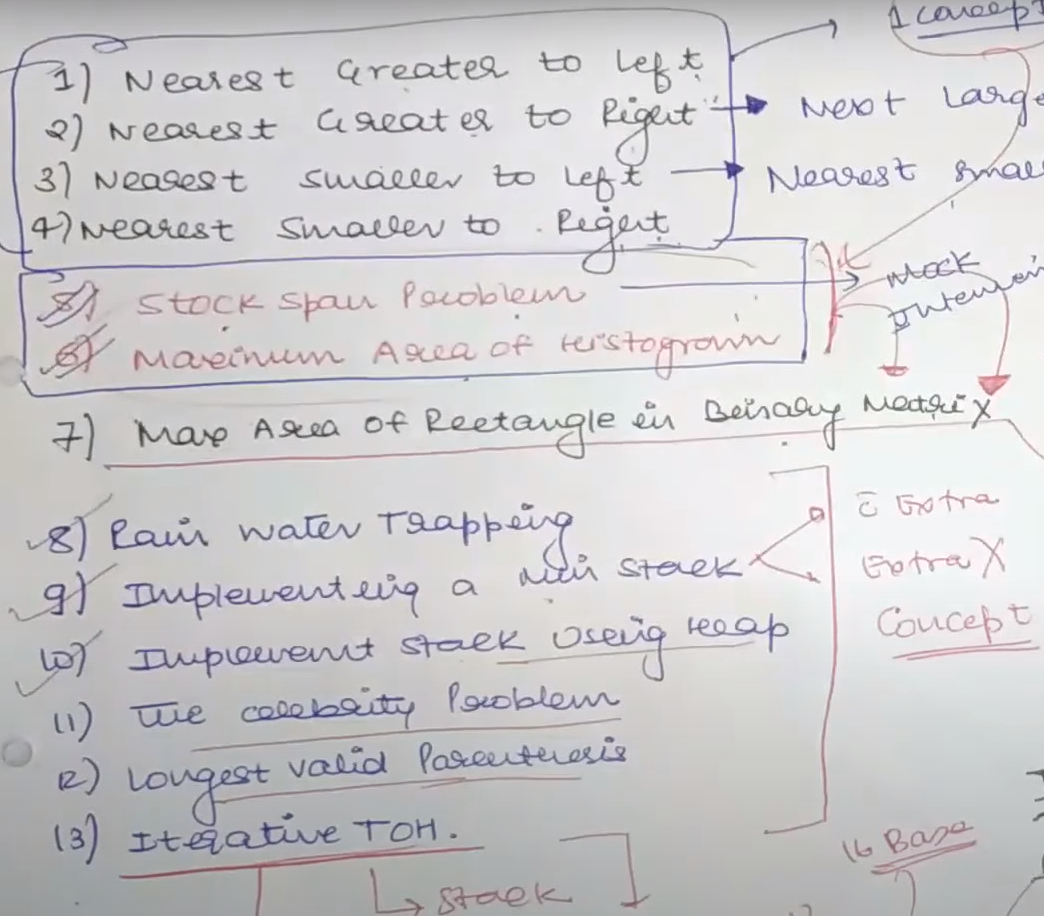 1 Concept
1) Nearest Greater to Left
2) Nearest Greater to Right → Next Large
3) Nearest Smaller to Left → Nearest Smal
4) Nearest Smaller to Right
5) Stock Span Problem → Mock
6) Maximum Area of Histogram
7) Max Area of Rectangle in Beinary Matrix
8) Rain Water Trapping
9) Implementing a min stack
Extra
Extra X
Concept
10) Implement stack Using Heap
11) The celebrity Problem
12) Longest valid Parenthesis
13) Iterative TOH.
16 Base
↳ stack